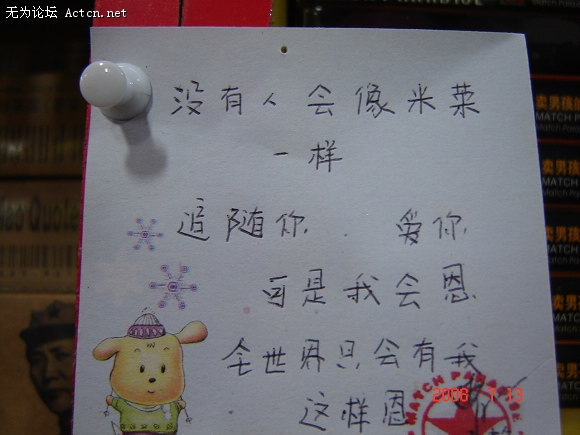 无为论坛 Actcn.net
没有人会像米菜
一样
追随你. 爱你.
可是我会恩.
全世界只会有我
这样恩
MATCH PARADISE
2006 1 13
卖男孩
MATCH PA